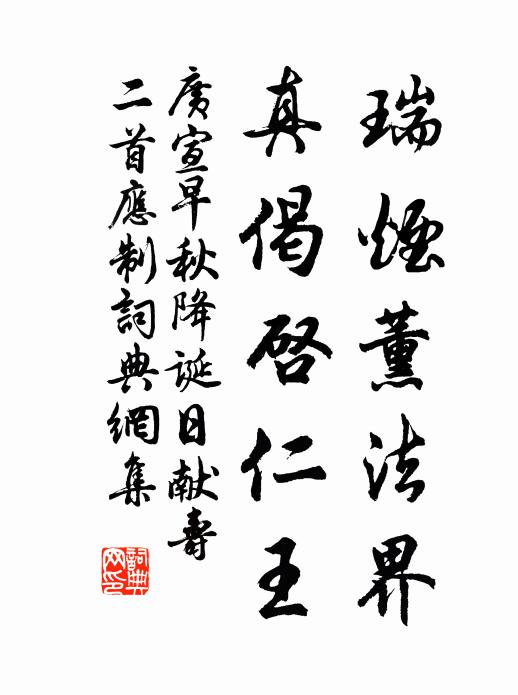 瑞煙薰法界
真偈啓仁王
廣宣早秋降誕日献壽
二首應制詞典網集
詞典網印